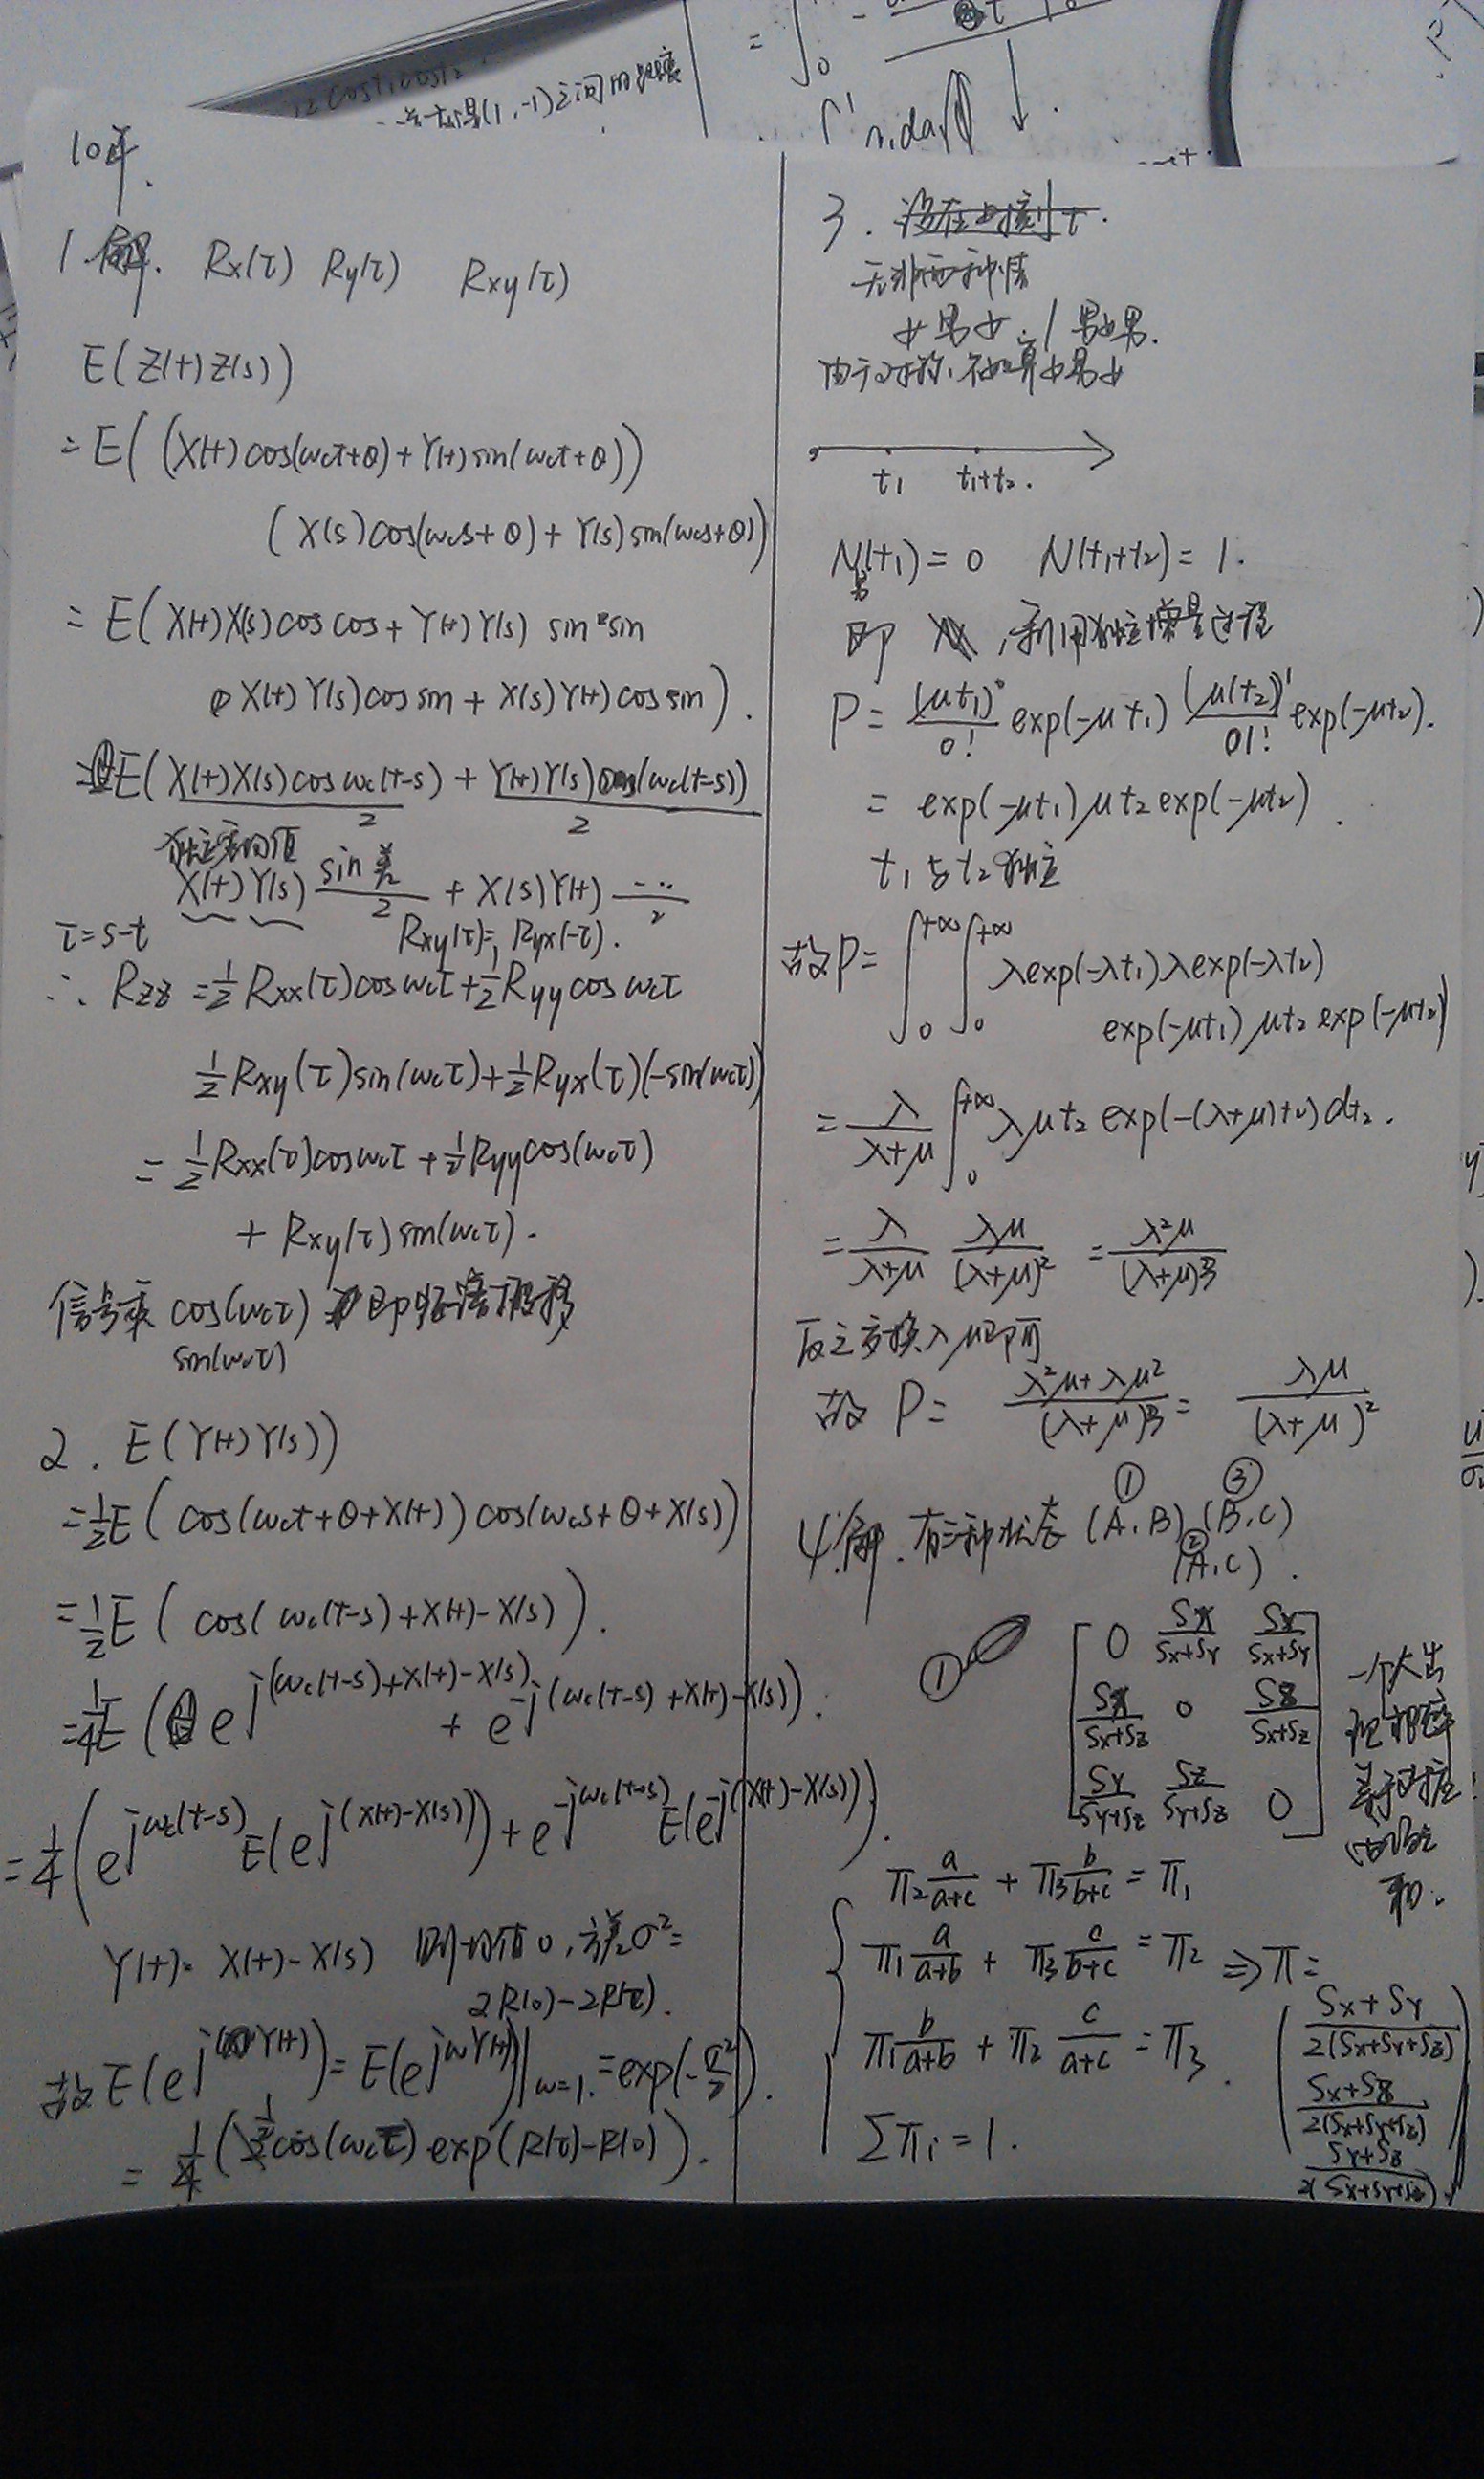 10年.
1.解. Rx(τ) Ry(τ) Rxy(τ)
E(Z(t)Z(s))
=E((X(t)cos(ωct+θ)+Y(t)sin(ωct+θ))
(X(s)cos(ωcs+θ)+Y(s)sin(ωcs+θ))
=E(X(t)X(s)cos cos+Y(t)Y(s) sin sin
X(t)Y(s)cos sin+X(s)Y(t)cos sin).
=E(X(t)X(s)cos ωc(t-s)/2 + Y(t)Y(s)cos(ωc(t-s))/2
X(t)Y(s) sin差/2 + X(s)Y(t) .../2
τ=s-t Rxy(τ)=Ryx(-τ).
∴ Rzz=1/2 Rxx(τ)cos ωcτ+1/2 Ryy cos ωcτ
1/2 Rxy(τ)sin(ωcτ)+1/2 Ryx(τ)(-sin(ωcτ))
=1/2 Rxx(τ)cos ωcτ+1/2 Ryy cos(ωcτ)
+Rxy(τ)sin(ωcτ).
信号乘 cos(ωcτ) 即频谱搬移
sin(ωcτ)
2. E(Y(t)Y(s))
=1/2 E(cos(ωct+θ+X(t))cos(ωcs+θ+X(s))
=1/2 E(cos(ωc(t-s)+X(t)-X(s)).
=1/4 E(e^j(ωc(t-s)+X(t)-X(s)) + e^-j(ωc(t-s)+X(t)-X(s))).
=1/4(e^jωc(t-s) E(e^j(X(t)-X(s)))+e^-jωc(t-s) E(e^-j(X(t)-X(s)))).
Y(t)=X(t)-X(s) 则均值0,方差σ²=
2R(0)-2R(τ).
故E(e^j(Y(t)))=E(e^jωY(t))|ω=1.=exp(-σ²/2).
=1/4(cos(ωcτ)exp(R(τ)-R(0)).
3.
无非两种情
女男女,/男女男.
由于对称,不妨算女男女
t1 t1+t2.
N男(t1)=0 N(t1+t2)=1.
即 ,利用独立增量过程
P=(μt1)^0/0! exp(-μt1) (μ(t2))^1/1! exp(-μt2).
=exp(-μt1)μt2exp(-μt2).
t1与t2独立
故P=∫0^+∞∫0^+∞ λexp(-λt1)λexp(-λt2)
exp(-μt1)μt2exp(-μt2)
=λ/(λ+μ) ∫0^+∞ λμt2 exp(-(λ+μ)t2)dt2.
=λ/(λ+μ) λμ/(λ+μ)²=λ²μ/(λ+μ)³
反之交换λμ即可
故P=(λ²μ+λμ²)/(λ+μ)³=λμ/(λ+μ)²
4.解.有三种状态 ①(A,B) ③(B,C)
②(A,C).
① [0 Sx/(Sx+Sy) Sy/(Sx+Sy)
Sx/(Sx+Sz) 0 Sz/(Sx+Sz)
Sy/(Sy+Sz) Sz/(Sy+Sz) 0]
π2 a/(a+c)+π3 b/(b+c)=π1
π1 a/(a+b)+π3 c/(b+c)=π2 ⇒π=
π1 b/(a+b)+π2 c/(a+c)=π3.
Σπi=1.
(Sx+Sy)/2(Sx+Sy+Sz)
(Sx+Sz)/2(Sx+Sy+Sz)
(Sy+Sz)/2(Sx+Sy+Sz)